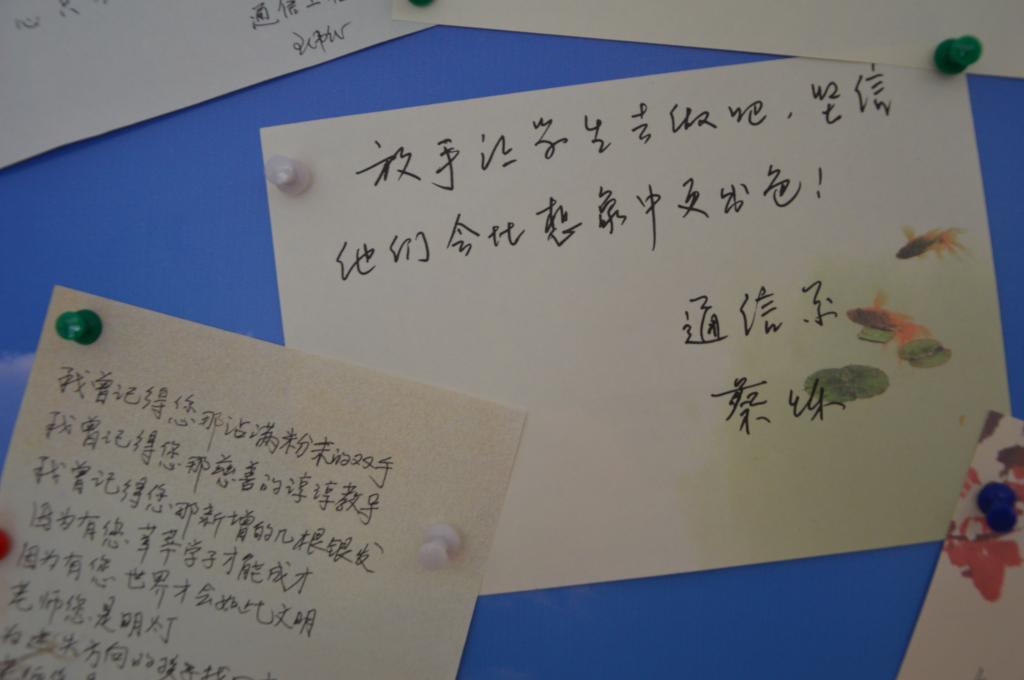 通信工程
放手让学生去做吧，坚信
他们会比想象中更出色！
通信系
蔡烁
我曾记得您那沾满粉末的双手
我曾记得您那慈善的谆谆教导
我曾记得您那新增的几根银发
因为有您 莘莘学子才能成才
因为有您 世界才会如此文明
老师您是明灯
方向的孩子